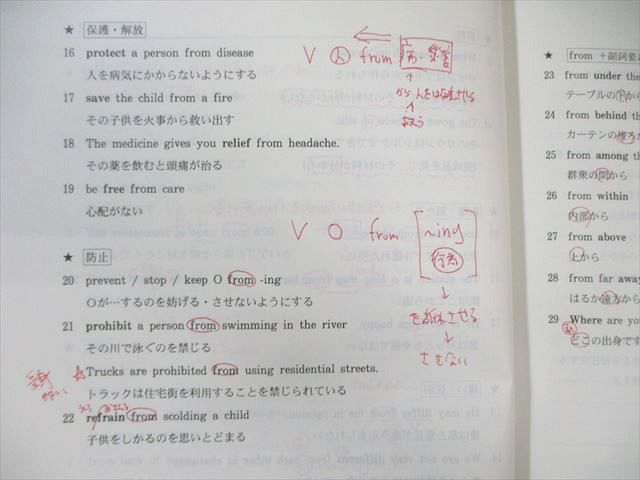 ★ 保護・解放
16 protect a person from disease
人を病気にかからないようにする
17 save the child from a fire
その子供を火事から救い出す
18 The medicine gives you relief from headache.
その薬を飲むと頭痛が治る
19 be free from care
心配がない
★ 防止
20 prevent / stop / keep O from -ing
Oが…するのを妨げる・させないようにする
21 prohibit a person from swimming in the river
その川で泳ぐのを禁じる
Trucks are prohibited from using residential streets.
トラックは住宅街を利用することを禁じられている
22 refrain from scolding a child
子供をしかるのを思いとどまる
V 人 from
から人を
V O from
~ing
行為
↓
↓
させない
★ from +副詞要
23 from under the
テーブルの下から
24 from behind th
カーテンの後ろか
25 from among th
群衆の間から
26 from within
内部から
27 from above
上から
28 from far away
はるか遠方から
29 Where are you
どこの出身です